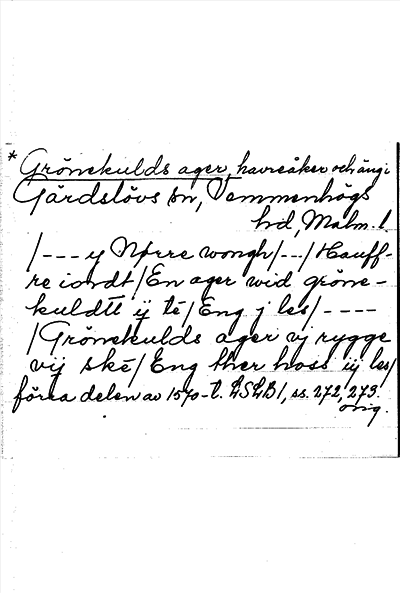 * Grönekulds ager, havreåker och äng i
Gärdslövs sn, Vemmenhögs
hd, Malm. l.
/--- y Nørre wongh/--/Hauff-
re iordt/En ager wid gröne-
kuldtt ij té/Eng j les/----
/Grönekulds ager vj rygge
vij ské/Eng ther hoss ij les/
förra delen av 1570-t. LSLB1, ss. 272, 273.
orig.